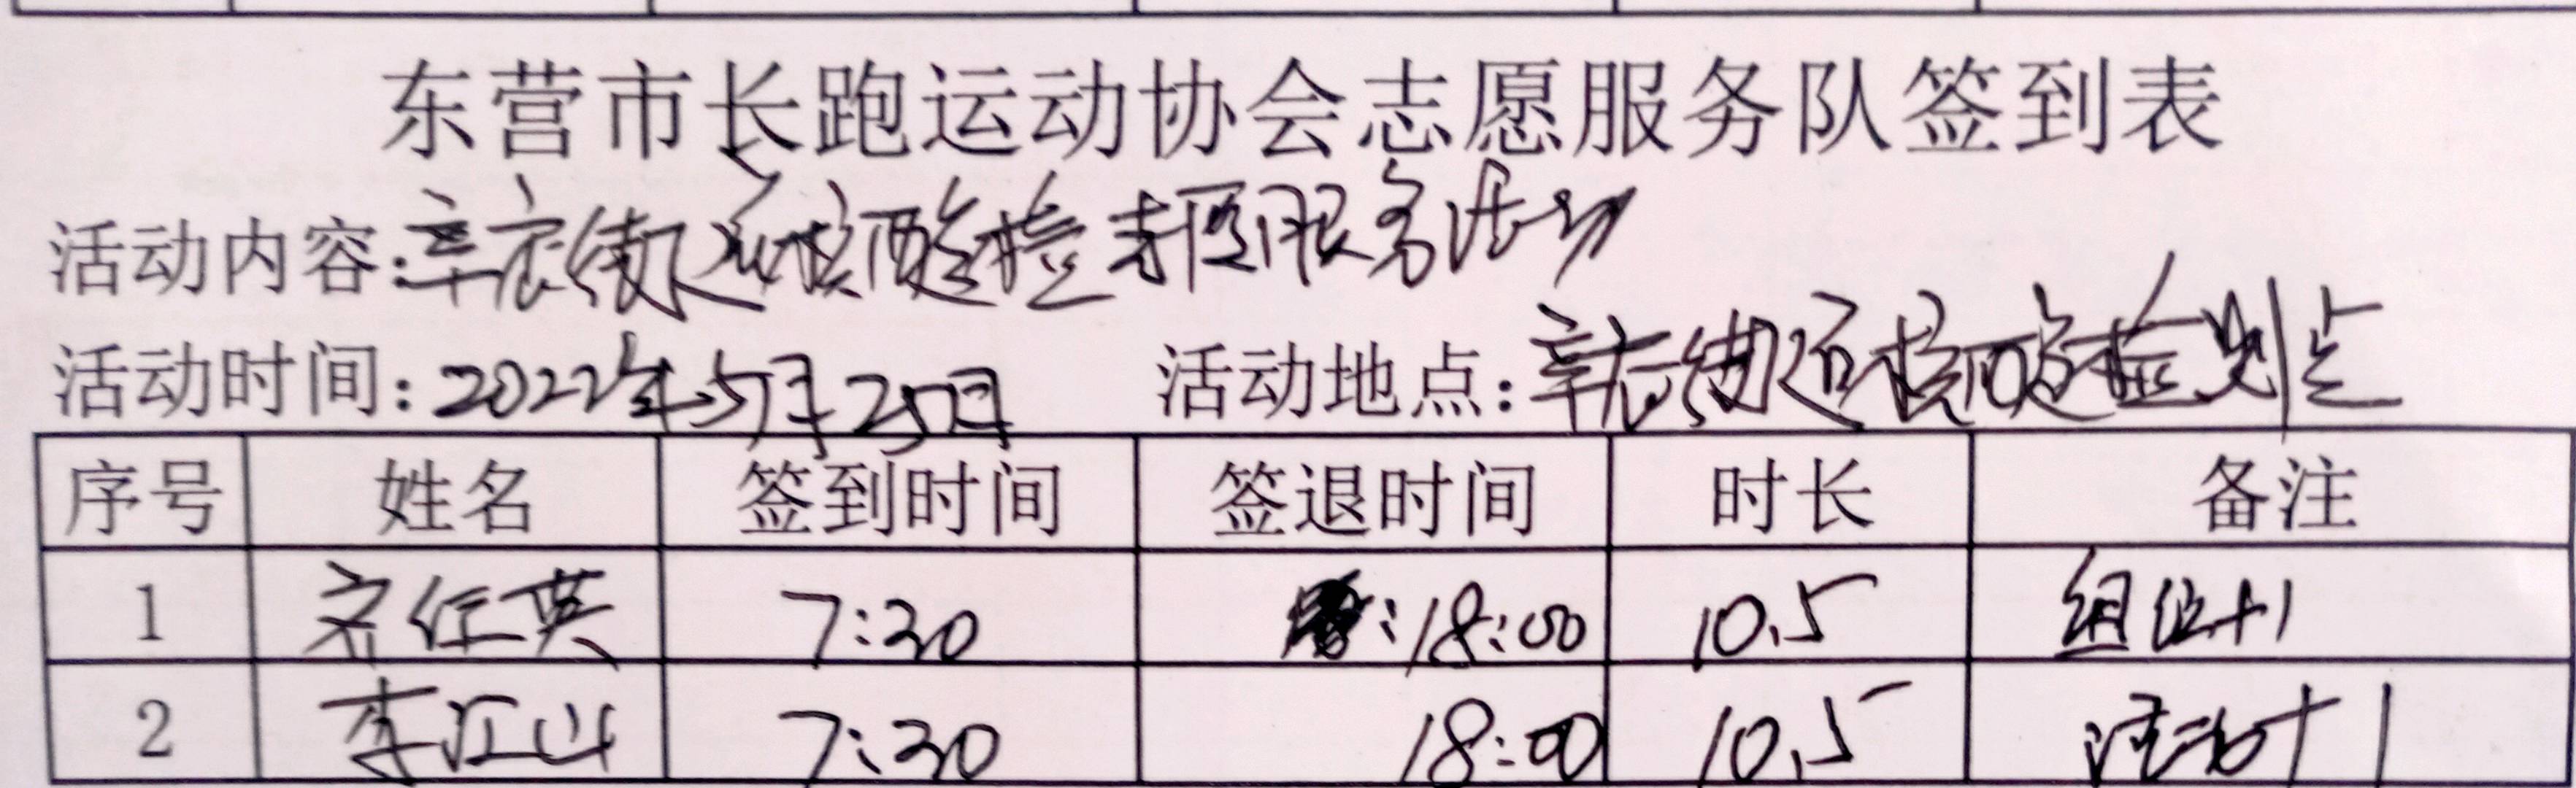 东营市长跑运动协会志愿服务队签到表
活动内容:辛店街道核酸检志愿服务活动
活动时间:2022年5月25日 活动地点:辛店街道核酸检测点
序号 姓名 签到时间 签退时间 时长 备注
1 红英 7:30 :18:00 10.5 组织+1
2 李江山 7:30 18:00 10.5 活动+1